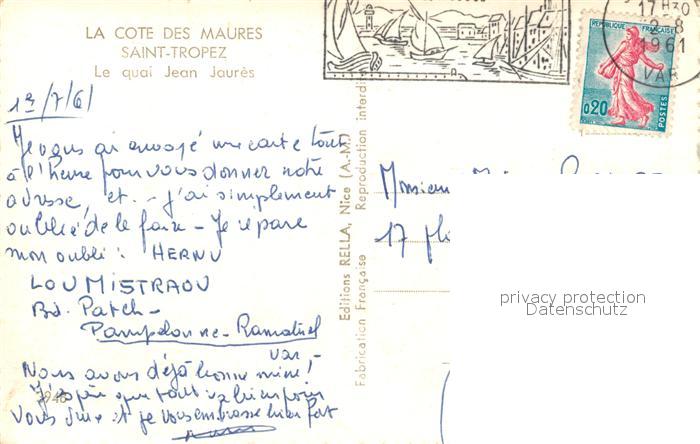 LA COTE DES MAURES
SAINT-TROPEZ
Le quai Jean Jaurès
17 H30
2-8
1961
VAR
REPUBLIQUE FRANÇAISE
0,20
POSTES
Editions RELLA, Nice (A.-M.)
Fabrication Française Reproduction interdite
1er/7/61
Je vous ai envoyé une carte tout
à l'heure pour vous donner notre
adresse, et - j'ai simplement
oublié de le faire - Je répare
mon oubli : HERNU
LOU MISTRAOU
Bd. Patch -
Pampelonne - Ramatuel
Var -
Nous avons déjà bonne mine !
J'espère que tout va bien pour
vous et je vous embrasse bien fort
Monsieur
17
privacy protection
Datenschutz